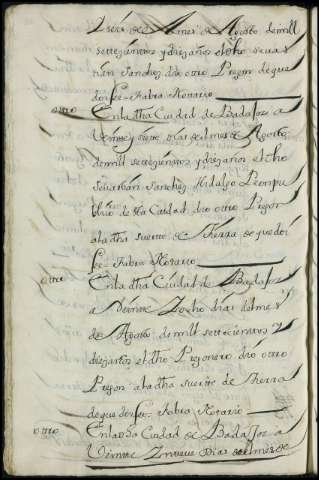 de Agosto de mill
settezientos y diez años el dho Sevas
tian Sanchez dio otro Pregon de que
doi fee - Fabra Notario
otro En la dha Ciudad de Badajoz a
Veinte y siete dias del mes de Agosto
de mill settezientos y diez años el dho
Sevastian Sanchez Hidalgo Pregon
de dha Ciudad dio otro Pregon
a la dha suerte de tierra de que doi
fee - Fabra Notario
otro En la dha Ciudad de Badajoz
a Veinte Y ocho dias del mes
de Agosto de mill settecientos y
diez años el dho Pregonero dio otro
Pregon a la dha suerte de tierra
de que doi fee - Fabra Notario
otro En la dha Ciudad de Badajoz a
Veinte Y nueve Dias del mes de